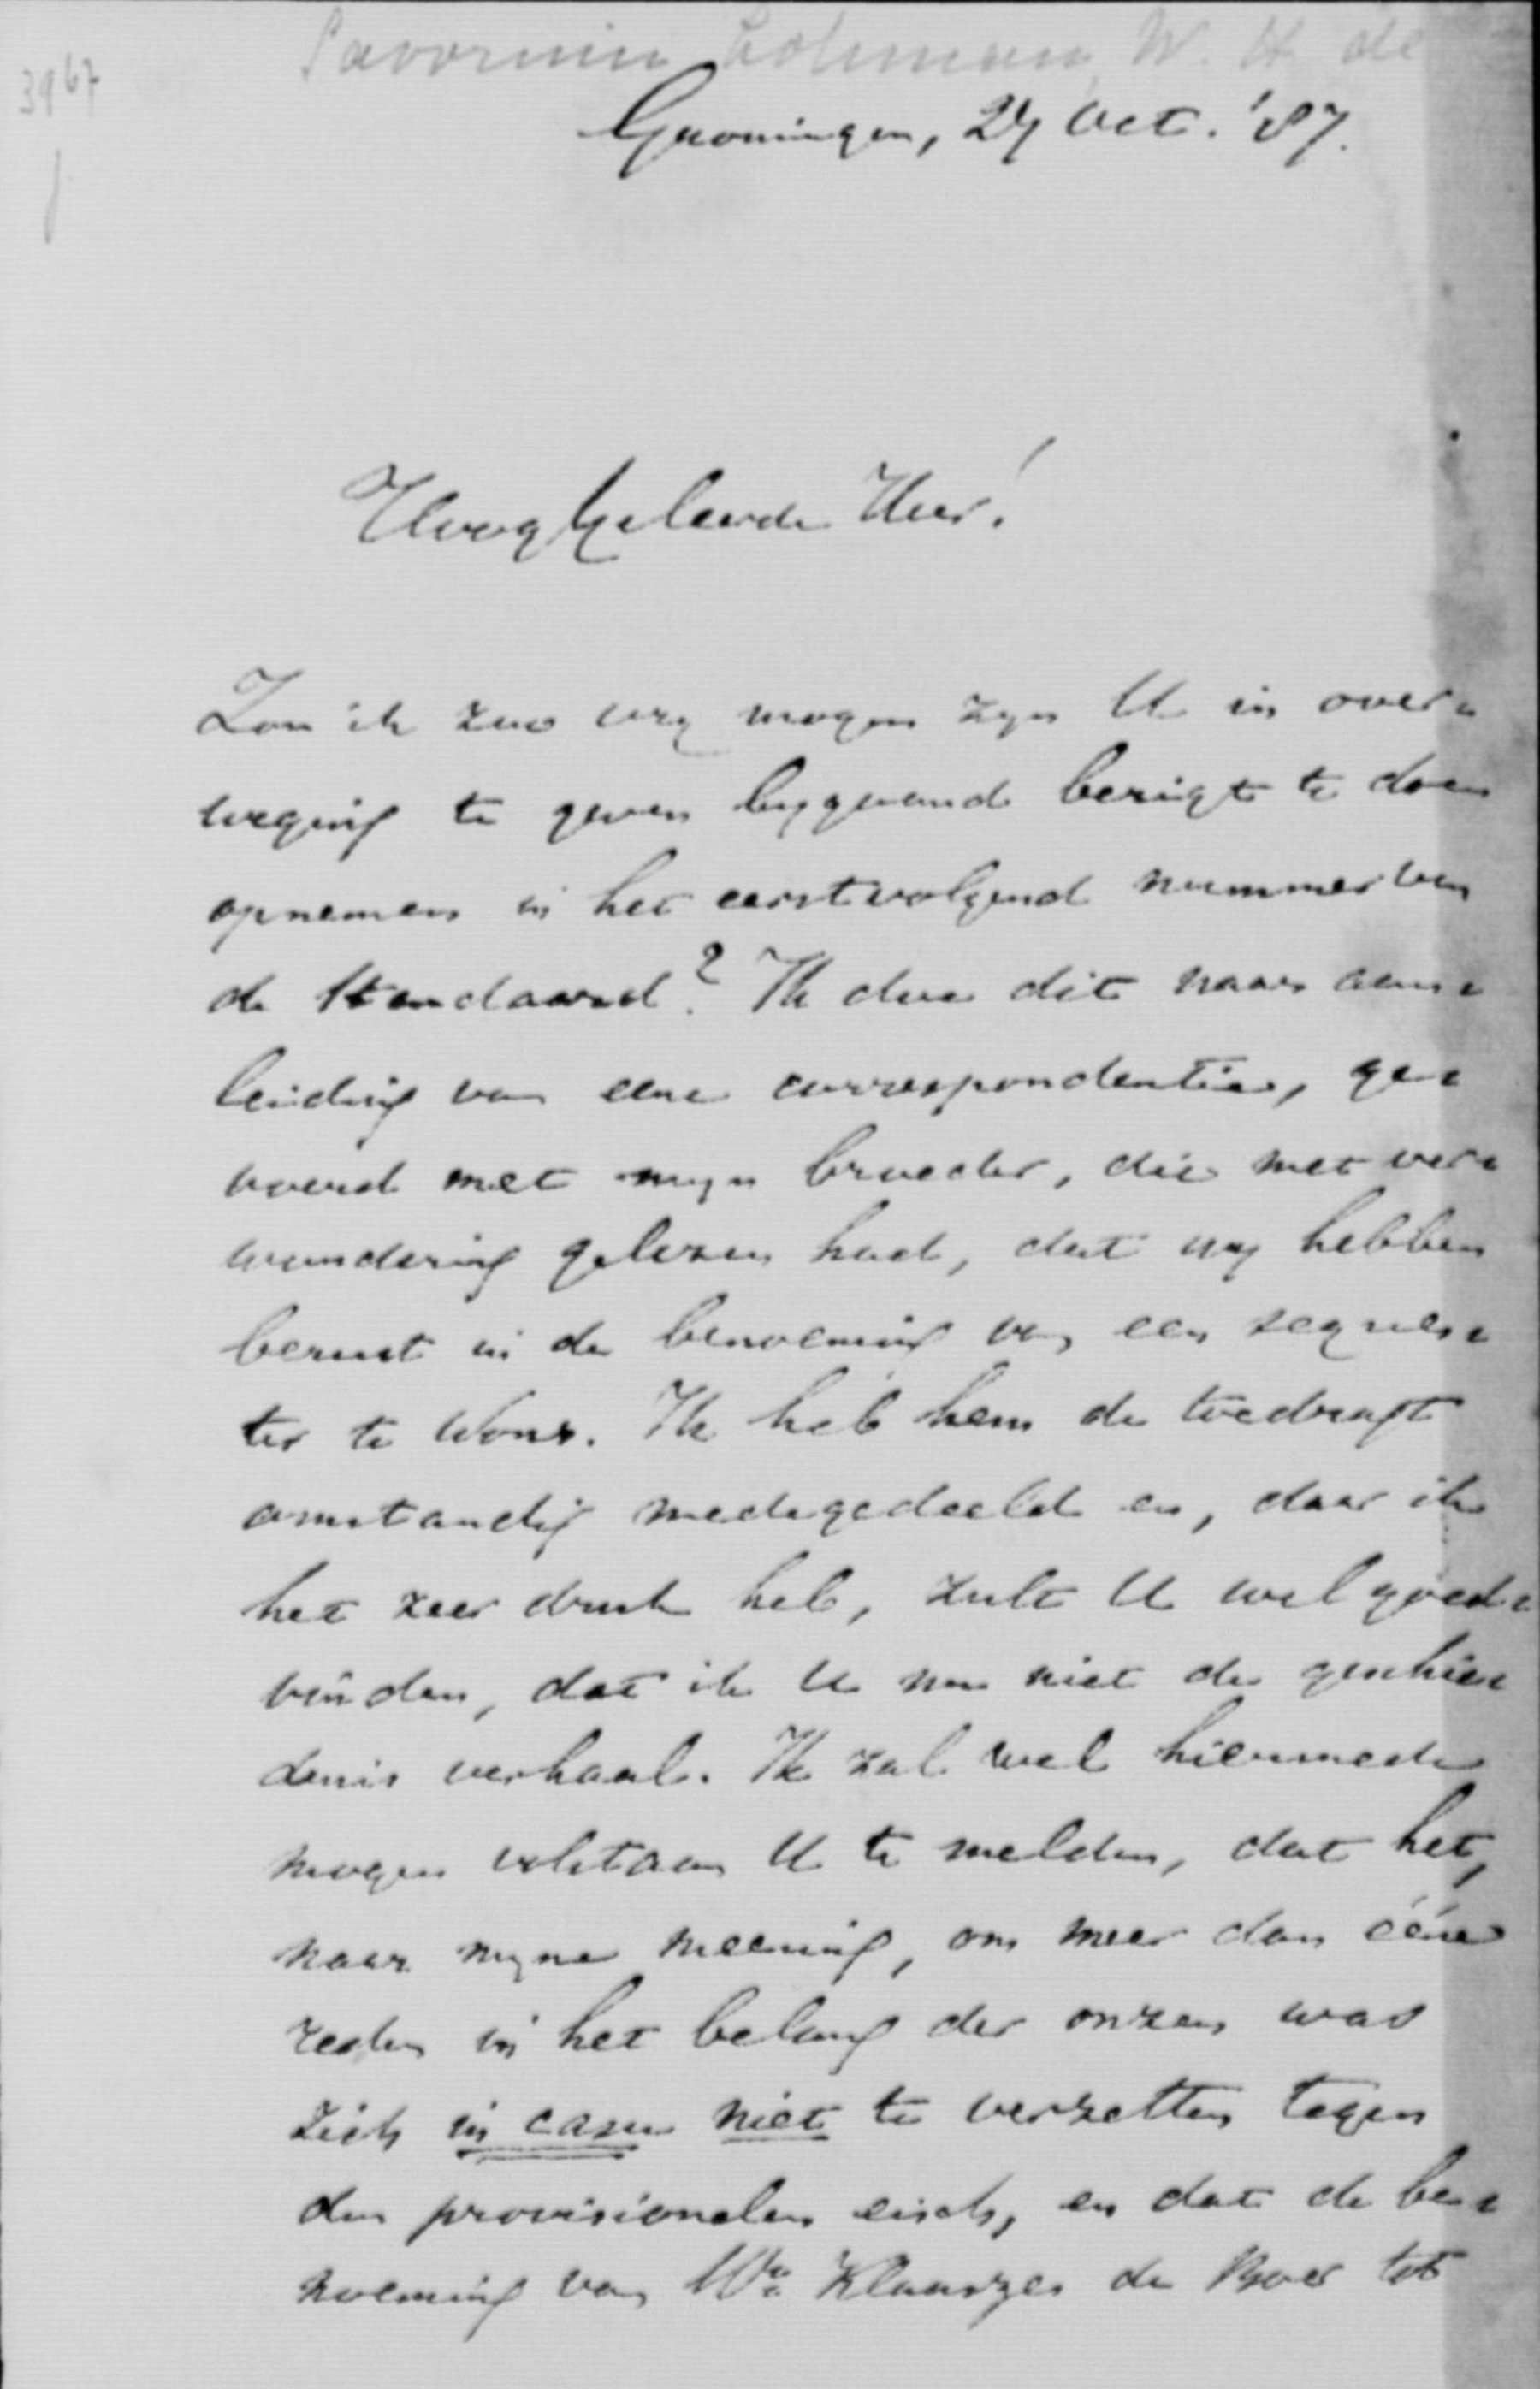 Savornin Lohman, W. H. de
3967
Groningen, 29 Oct. '87.
Hoog Geleerde Heer!
Zou ik zoo vry mogen zyn U in over-
weging te geven bygaand berigt te doen
opnemen in het eerstvolgend nummer van
de Standaard? Ik doe dit naar aan-
leiding van eene correspondentie, ge-
voerd met myn broeder, die met ver-
wondering gelezen had, dat wy hebben
berust in de benoeming van een seques-
ter te Wons. Ik heb hem de toedragt
omstandig medegedeeld en, daar ik
het zeer druk heb, zult U wel goed-
vinden, dat ik U nu niet de geschie-
denis verhaal. Ik zal wel hiermede
mogen volstaan U te melden, dat het,
naar myne meening, om meer dan ééne
reden in het belang der onzen was
zich in casu niet te verzetten tegen
den provisionelen eisch, en dat de be-
noeming van Wm Klaaszes de Boer tot